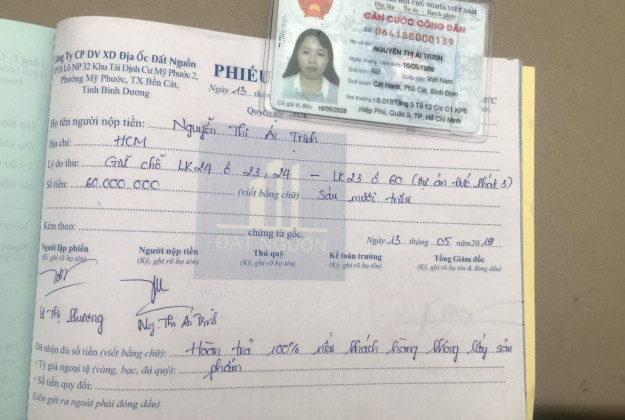 HỘI CHỦ NGHĨA VIỆT NAM
Độc lập - Tự do - Hạnh phúc
CĂN CƯỚC CÔNG DÂN
Số 064188000139
NGUYỄN THỊ ÁI TRINH
16/05/1988
Nữ Việt Nam
Cát Hanh, Phù Cát, Bình Định
Có giá trị đến: 16/05/2028
Hiệp Phú, Quận 9, TP. Hồ Chí Minh
Công Ty CP DV XD Địa Ốc Đất Nguồn
Lô NP 32 Khu Tái Định Cư Mỹ Phước 2,
Phường Mỹ Phước, TX Bến Cát,
Tỉnh Bình Dương
PHIẾU
Ngày 13
Họ tên người nộp tiền: Nguyễn Thị Ái Trinh
Địa chỉ: HCM
Lý do thu: Giữ chỗ LK24 ô 23, 24 - LK23 ô 60 (Dự án Đức Phát 3)
Số tiền: 60.000.000 (viết bằng chữ) Sáu mươi triệu
Kèm theo: chứng từ gốc.
ĐẤT NGUỒN
Ngày 13 tháng 05 năm 2019
Người lập phiếu Người nộp tiền Thủ quỹ Kế toán trưởng Tổng Giám đốc
(Ký, ghi rõ họ tên) (Ký, ghi rõ họ tên) (Ký, ghi rõ họ tên) (Ký, ghi rõ họ tên) (Ký, ghi rõ họ tên & đóng dấu)
Thị Phương Ng. Thị Ái Trinh
Đã nhận đủ số tiền (viết bằng chữ): Hoàn trả 100% nếu khách hàng không lấy sản
phẩm
* Tỷ giá ngoại tệ (vàng, bạc, đá quý):
* Số tiền quy đổi:
(Liên gửi ra ngoài phải đóng dấu)